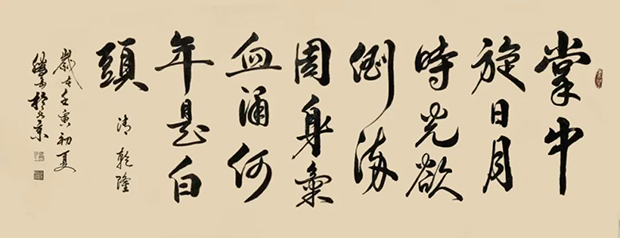 掌中
旋日月
時光欲
倒流
周身氣
血涌何
年是白
頭
清乾隆
歲在壬寅初夏
於北京